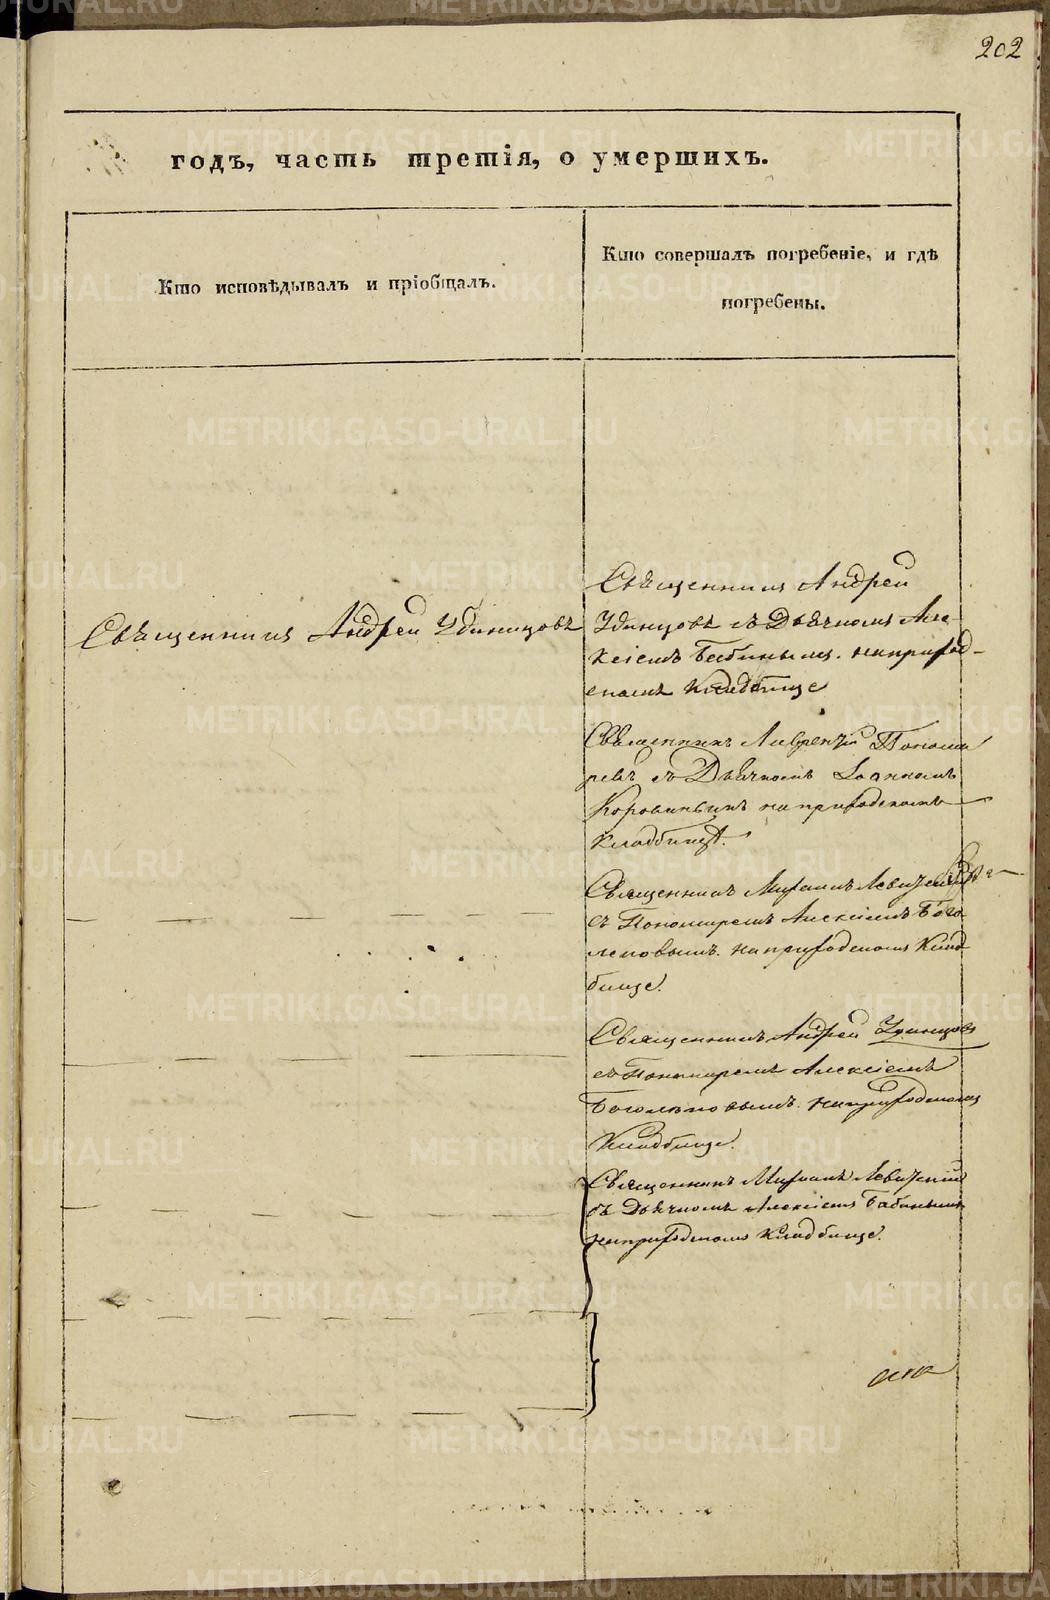 202
годъ, часть третія, о умершихъ.
Кто исповѣдывалъ и пріобщалъ.
Кто совершалъ погребеніе, и гдѣ
погребены.
Священникъ Андрей Удинцовъ
Священникъ Андрей
Удинцовъ съ Дьячкомъ Але-
ксіемъ Бабинымъ. на приход-
скомъ Кладбище
Священникъ Лаврентій Понома
ревъ съ Дьячкомъ Іоанномъ
Коровинымъ на приходскомъ
Кладбищѣ.
Священникъ Михаилъ Левитскій
съ Пономаремъ Алексіемъ Бого
леповымъ. на приходскомъ Клад
бище.
Священникъ Андрей Удинцовъ
съ Пономаремъ Алексіемъ
Боголѣповымъ. на приходскомъ
Кладбище.
Священникъ Михаилъ Левитскій
съ Дьячкомъ Алексіемъ Бабинымъ
на приходскомъ Кладбище.
METRIKI.GASO-URAL.RU